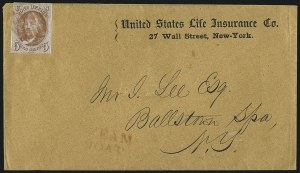 United States Life Insurance Co.
27 Wall Street, New-York.
Mr. J. Lee Esq.
Ballstown Spa,
N.Y.